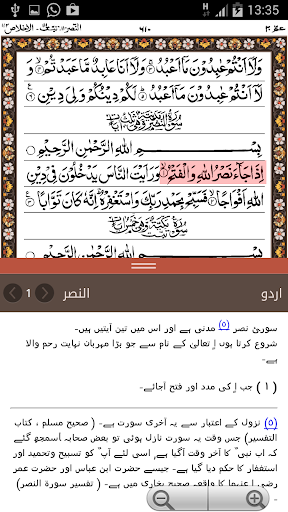 13:35
عم ٣٠
٦١٠
وَلَآ اَنْتُمْ عٰبِدُوْنَ مَآ اَعْبُدُ ۚ وَلَآ اَنَا عَابِدٌ مَّا عَبَدْتُّمْ ۙ
وَلَآ اَنْتُمْ عٰبِدُوْنَ مَآ اَعْبُدُ ؕ لَكُمْ دِيْنُكُمْ وَلِيَ دِيْنِ
بِسْمِ اللّٰهِ الرَّحْمٰنِ الرَّحِيْمِ
اِذَا جَآءَ نَصْرُ اللّٰهِ وَالْفَتْحُ ۙ وَرَاَيْتَ النَّاسَ يَدْخُلُوْنَ فِيْ دِيْنِ
اللّٰهِ اَفْوَاجًا ۙ فَسَبِّحْ بِحَمْدِ رَبِّكَ وَاسْتَغْفِرْهُ ؕ اِنَّهٗ كَانَ تَوَّابًا
بِسْمِ اللّٰهِ الرَّحْمٰنِ الرَّحِيْمِ
اردو
النصر
1
سورئ نصر (٥) مدنی ہے اور اس میں تین آیتیں ہیں۔
شروع کرتا ہوں ا تعالیٰ کے نام سے جو بڑا مہربان نہایت رحم والا ہے۔
(١) جب ا کی مدد اور فتح آجائے۔
(٥) نزول کے اعتبار سے یہ آخری سورت ہے۔ (صحیح مسلم ، کتاب
التفسیر) جس وقت یہ سورت نازل ہوئی تو بعض صحابہ سمجھ گئے
کہ اب نبی کا وقت آگیا ہے اسی لئے آپ کو تسبیح وتحمید اور
استغفار کا حکم دیا گیا ہے۔ جیسے حضرت ابن عباس اور حضرت عمر
رضی ا عنہما کا واقعہ صحیح بخاری میں ہے۔ (تفسیر سورۃ النصر)